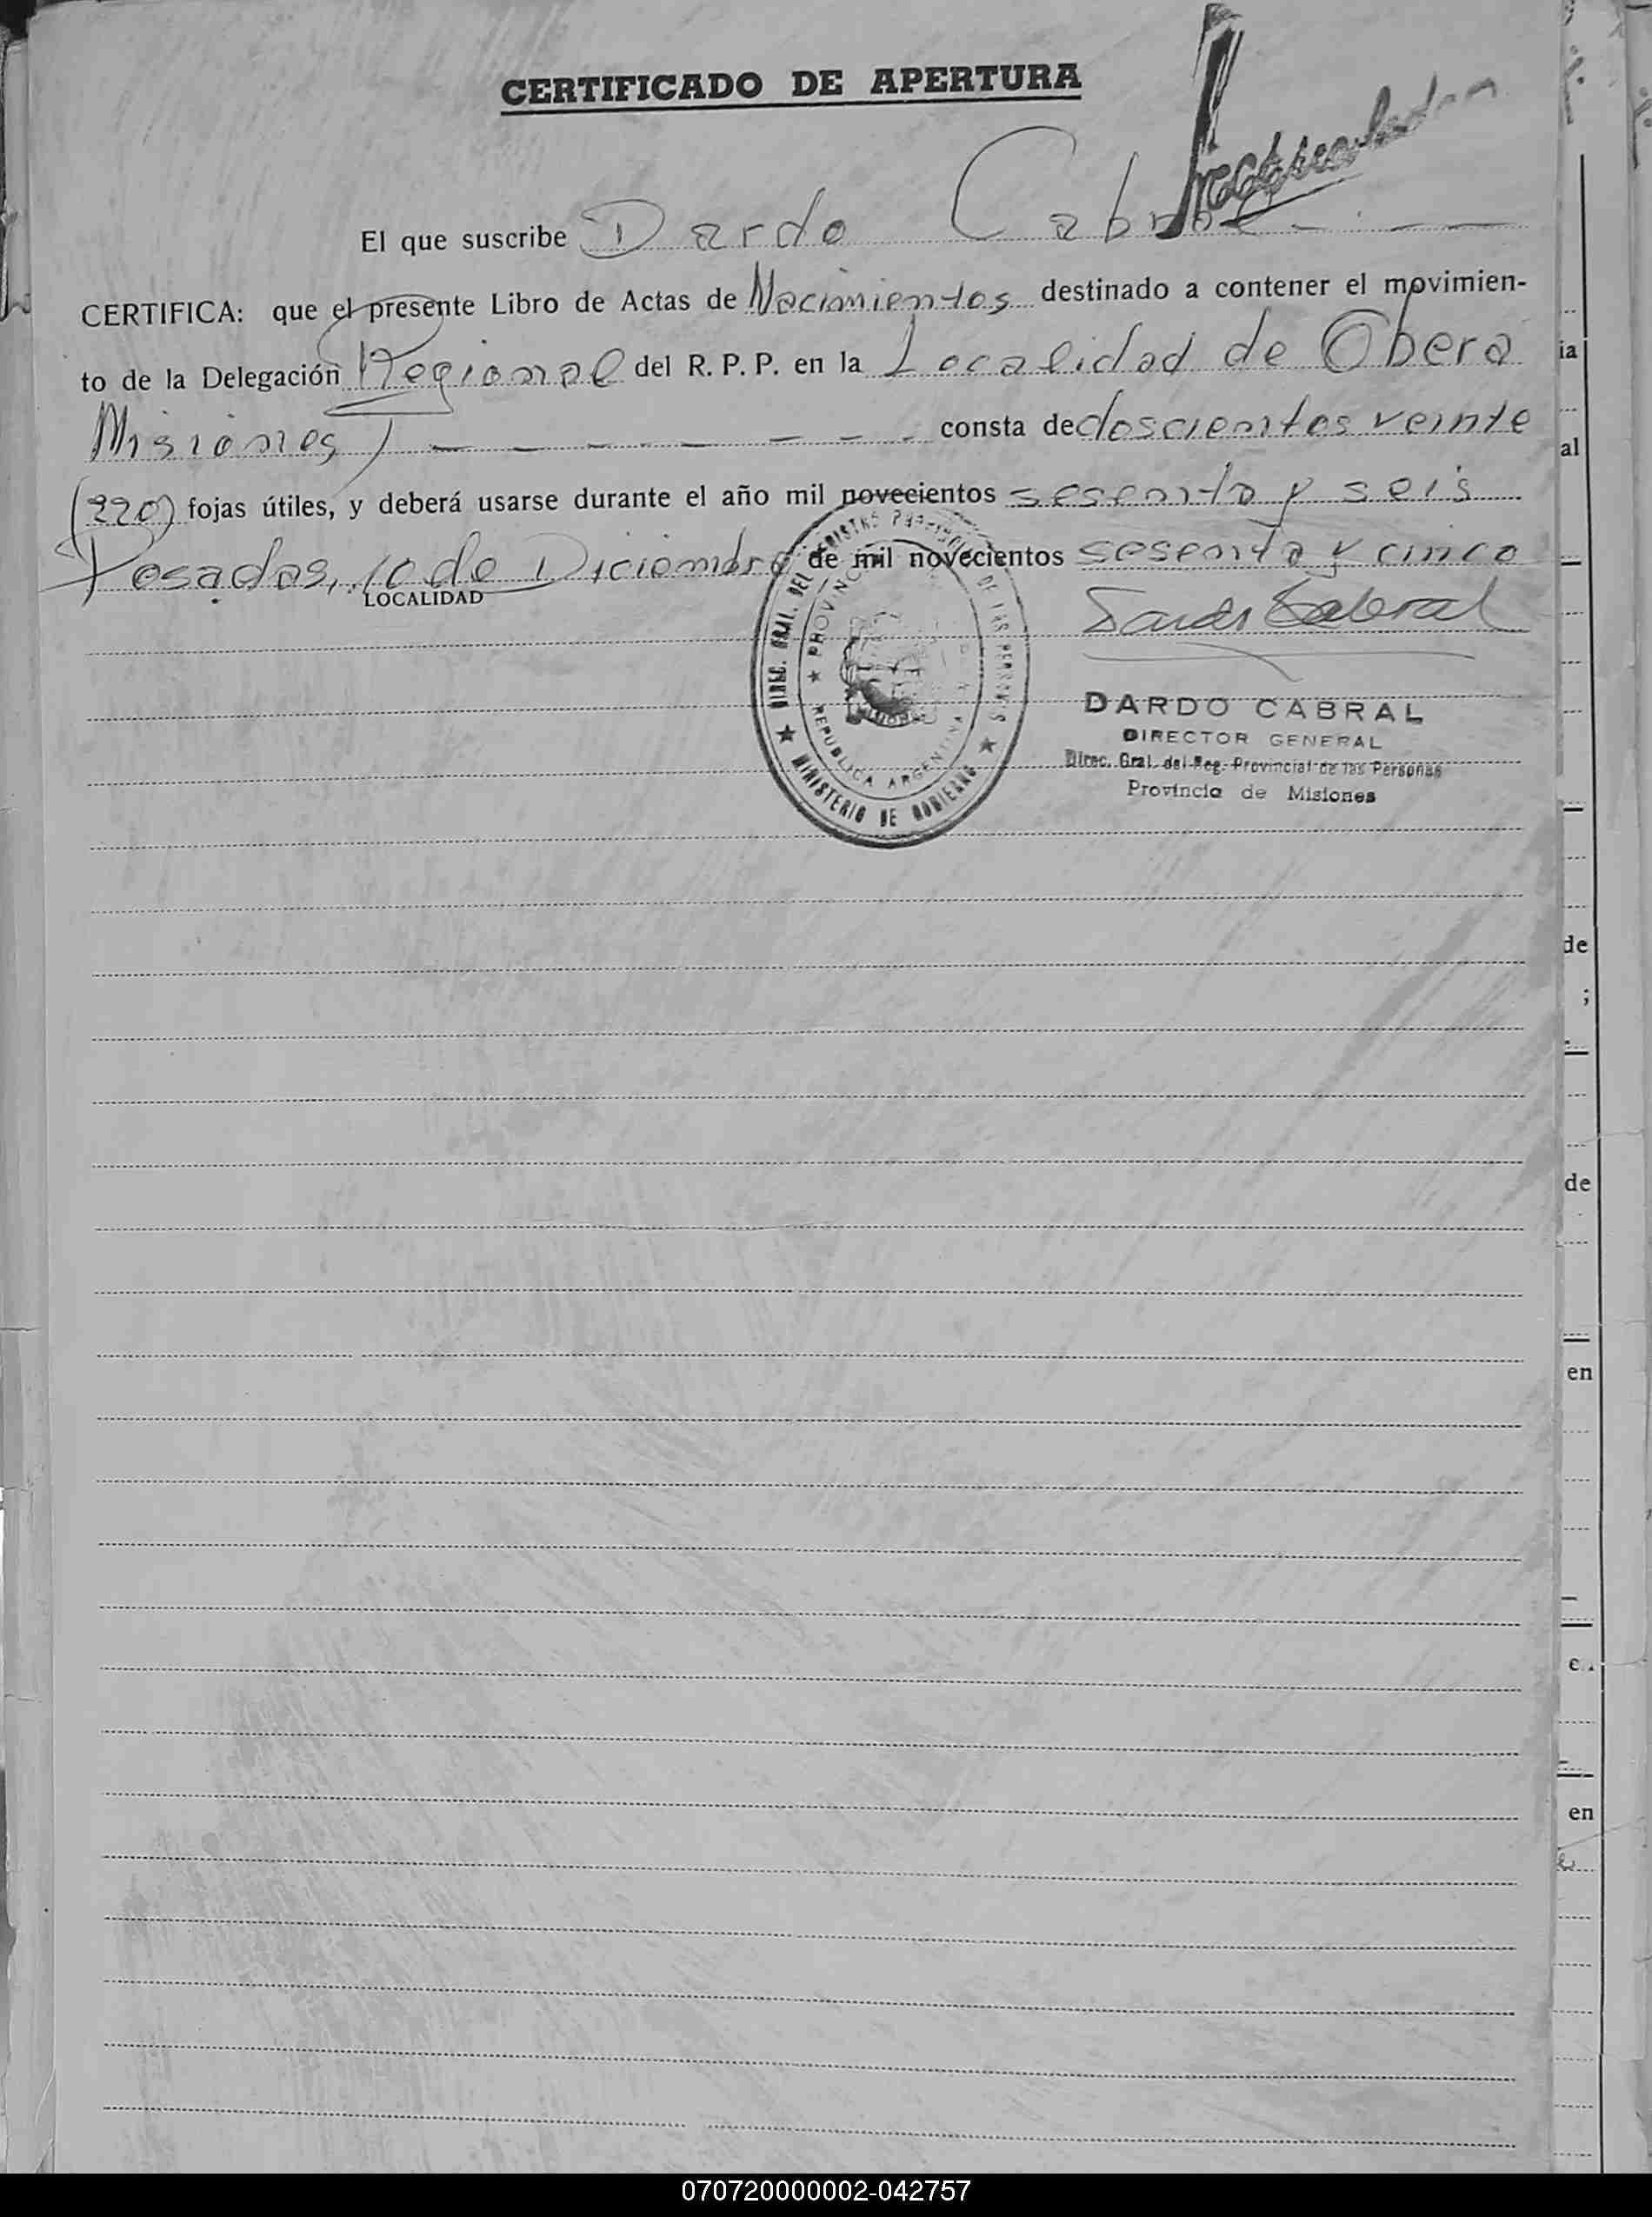 CERTIFICADO DE APERTURA
El que suscribe Dardo Cabral
CERTIFICA: que el presente Libro de Actas de Nacimientos destinado a contener el movimien-
to de la Delegación Regional del R. P. P. en la Localidad de Obera
Misiones) — — — — — — consta de doscientos veinte
(220) fojas útiles, y deberá usarse durante el año mil novecientos sesenta y seis
Posadas, 10 de Diciembre de mil novecientos sesenta y cinco
LOCALIDAD
Dardo Cabral
DIREC. GRAL. DEL REGISTRO PROVINCIAL DE LAS PERSONAS
PROVINCIA
REPUBLICA ARGENTINA
MINISTERIO DE GOBIERNO
DARDO CABRAL
DIRECTOR GENERAL
Direc. Gral. del Reg. Provincial de las Personas
Provincia de Misiones
ia
al
de
;
de
en
en
070720000002-042757